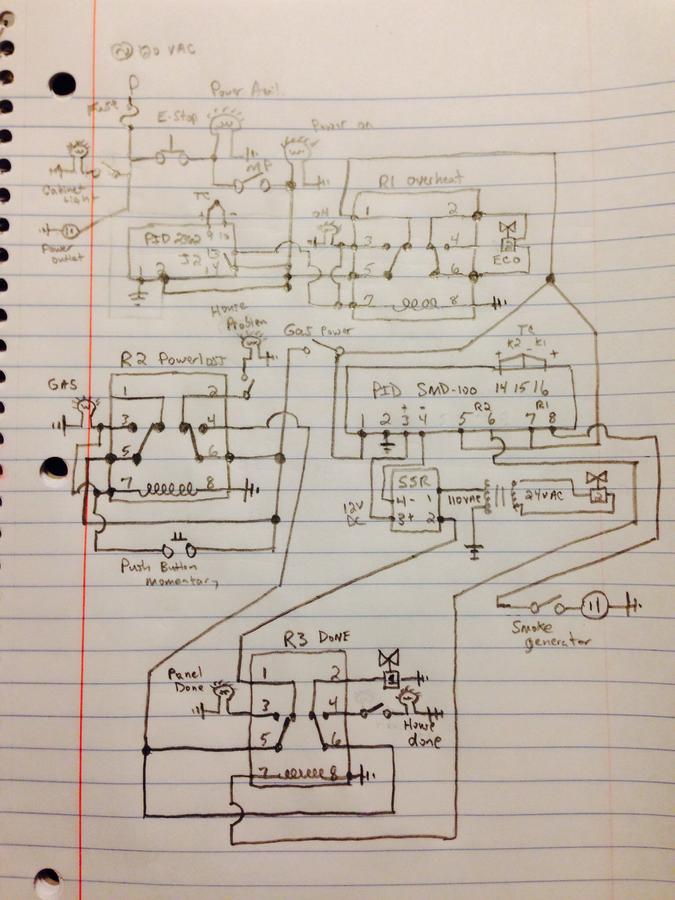 120 VAC
Fuse
E-Stop
Power Avail.
Power on
MP
Cabinet
Light
Power
outlet
TC
+ -
9 10
PID 2362
J2
13
14
1 2
OH
R1 overheat
1 2
3 4
5 6
7 8
ECO
House
Problem
Gas power
R2 Powerloss
GAS
1 2
3 4
5 6
7 8
Push Button
momentary
TC
+ K2 - K1 +
PID SMD-100 14 15 16
+ - R2 R1
1 2 3 4 5 6 7 8
SSR
4- 1
3+ 2
12V
DC
110VAC
24VAC
2
Smoke
generator
R3 DONE
Panel
Done
1 2
3 4
5 6
7 8
1
House
done